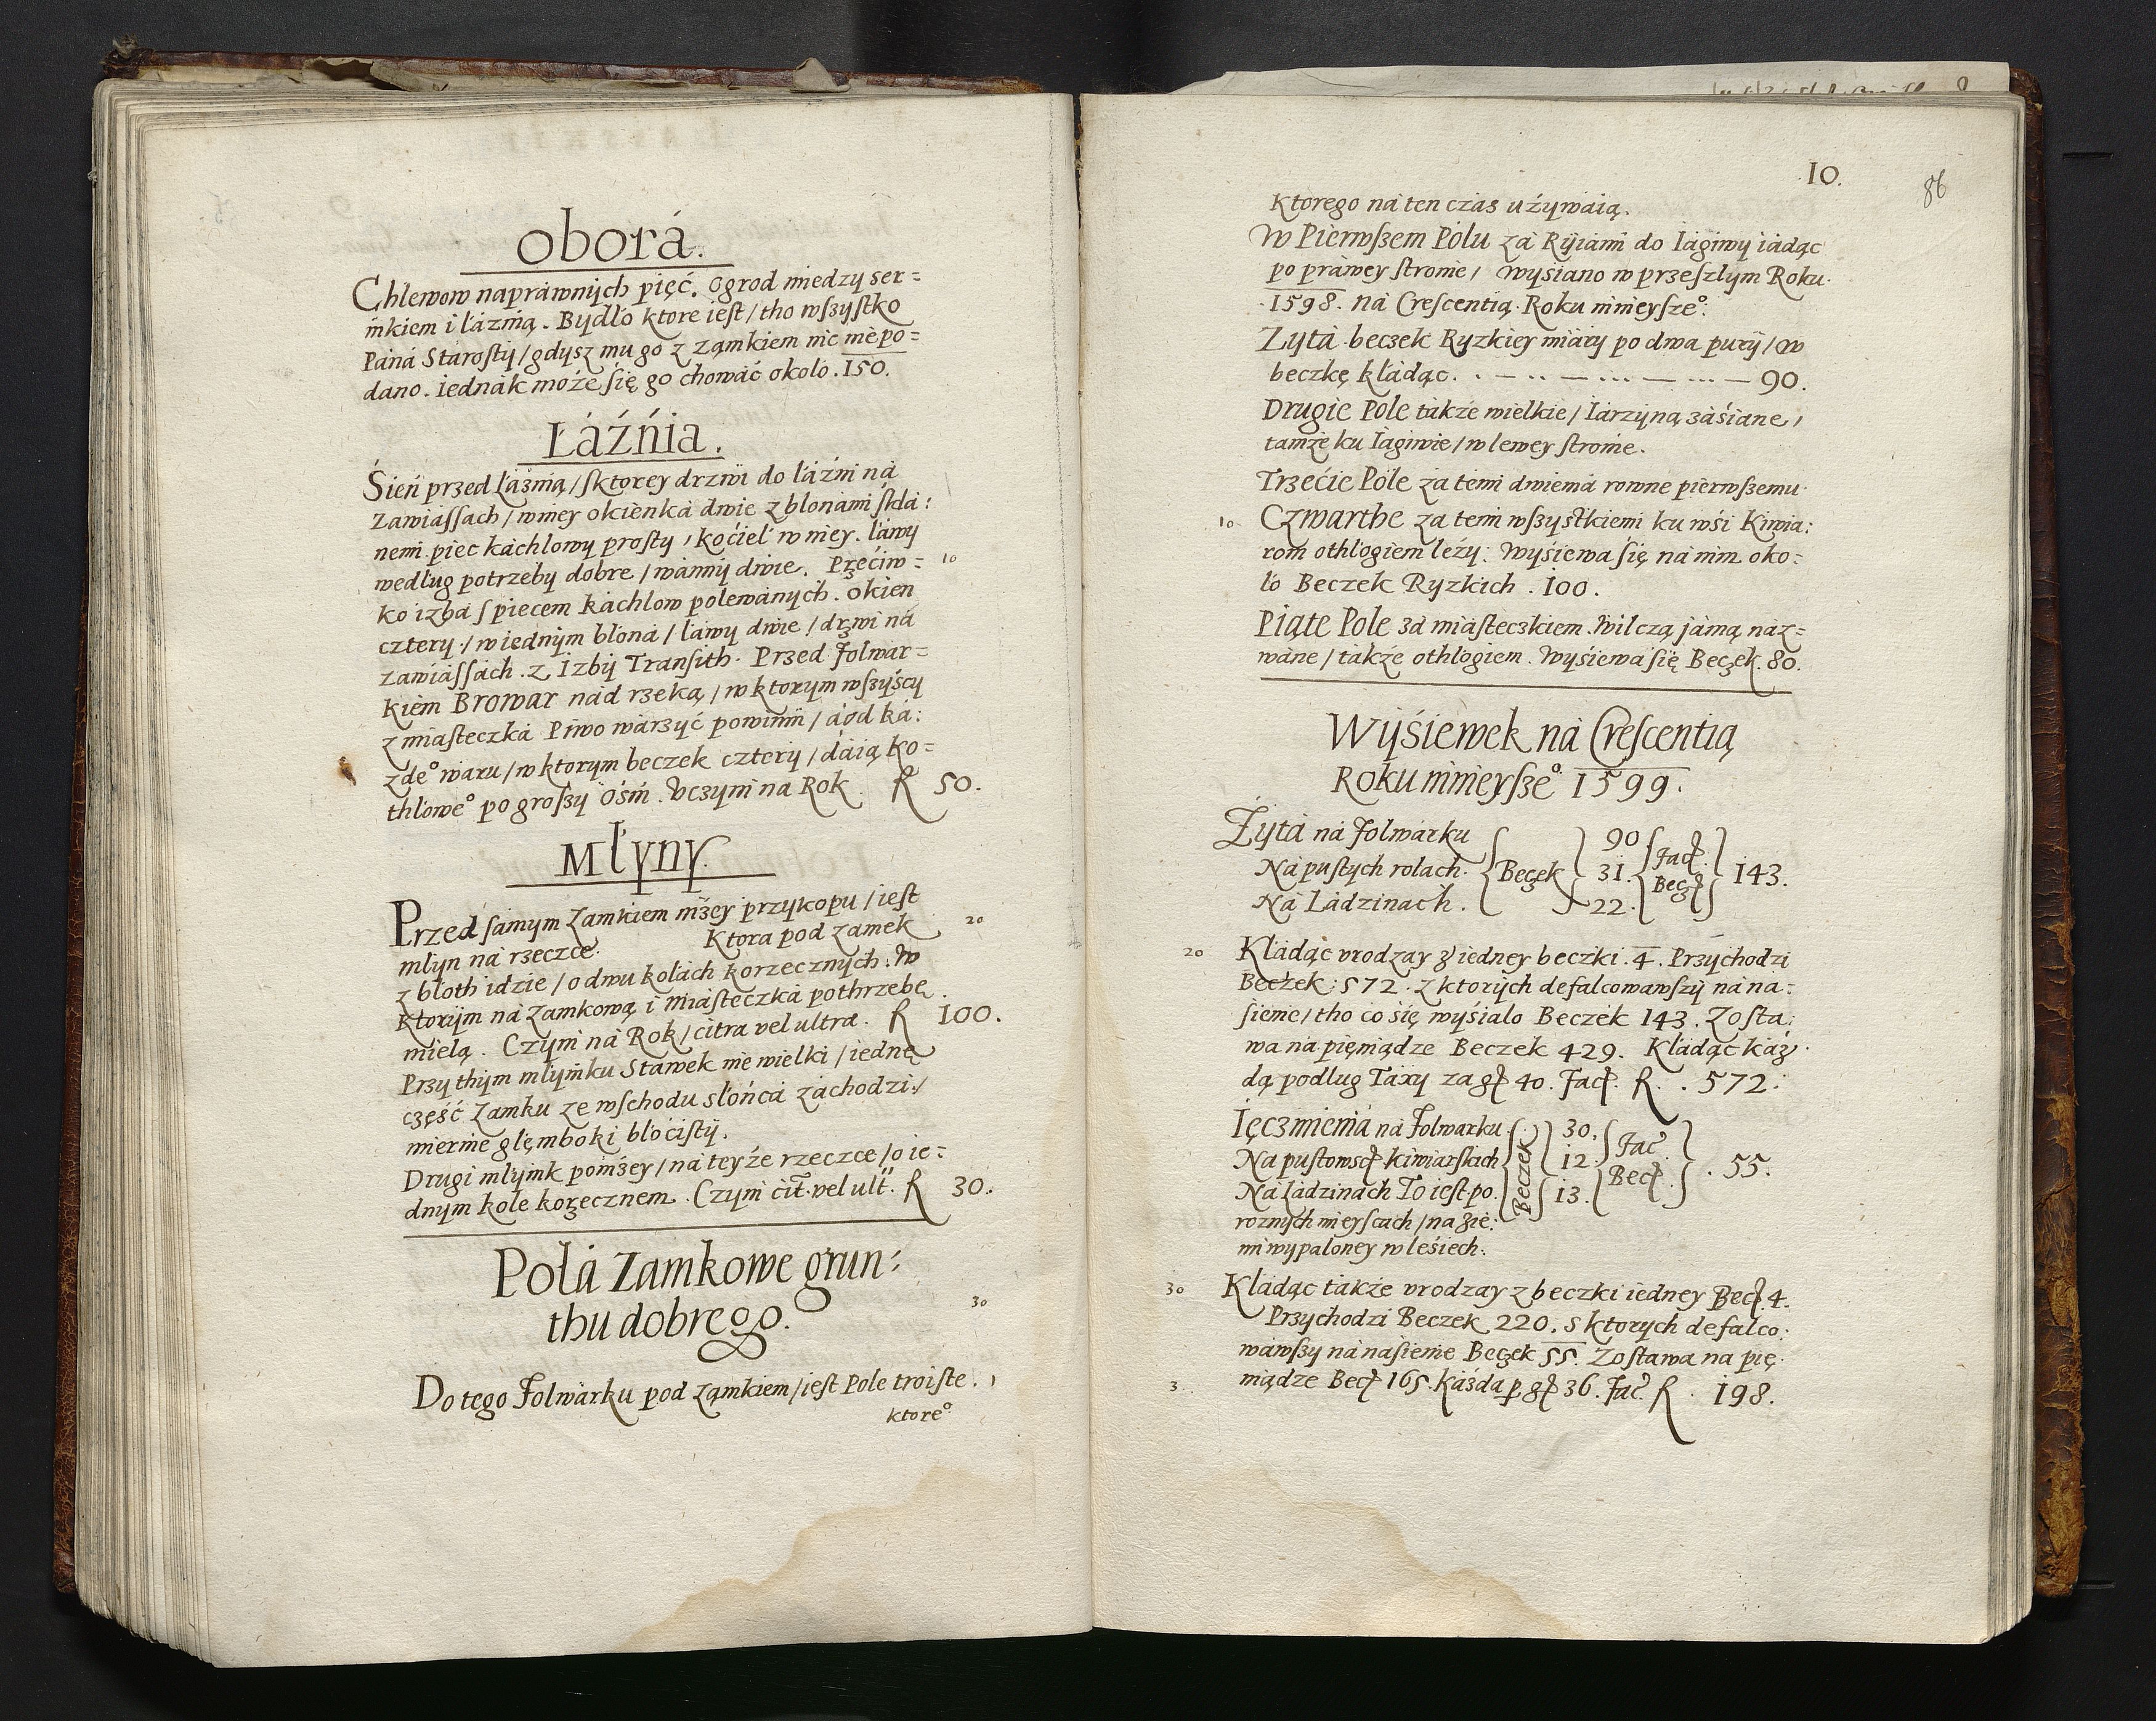 Oborá.
Chlewow náprawnych pięć. Ogrod miedzy ser=
nikiem i łáźnią. Bydło ktore iest/ tho wszystko
Páná Stárosty/ gdysz mu go z zamkiem nic nie po=
dano. iednák może się go chowáć około .150.
Łáźńia.
Śień przed łáźnią/ s ktorey drzwi do łáźni ná
zawiássach/ w niey okienká dwie z błonámi skla:
nemi. piec káchlowy prosty, kocieł w niey. łáwy
według potrzeby dobre/ wánny dwie. Przećiw= 10
ko izbá s piecem káchlow polewánych. Okien
cztery/ w iednym błoná/ łáwy dwie/ drzwi ná
zawiássách. z Izby Transith. Przed Folwar=
kiem Browar nád rzeką/ w ktorym wszyscy
z miásteczká Piwo wárzyć powinni/ á od ká:
żdeº waru/ w ktorym beczek cztery/ dáią ko=
thłoweº po groszy ośḿ. Vczyni na Rok. R 50.
Młyny.
Przed sámym zamkiem niżey przykopu/ iest 20
młyn ná rzeczce. Ktora pod zamek
z błoth idzie/ o dwu kołách korzecznych. W
Ktorym ná zamkową i miásteczká pothrzebę
mielą. Czyni ná Rok/ citra vel ultra. R 100.
Przy thym młynku Stawek nie wielki/ iednę
część zamku ze wschodu słońcá záchodzi/
miernie głęmboki błocisty.
Drugi młynik poniżey/ ná teyże rzeczce/ o ie=
dnym kole korzecznem. Czyni cit. vel ult. R 30.
Polá Zamkowe grun:
thu dobrego. 30
Do tego Folwárku pod zamkiem/ iest Pole troiste.
ktoreº
10.
86
Ktorego ná ten czas używáią.
W Pierwszem Polu zá Ryiámi do Iágiwy iádąc
po práwey stronie/ wysiano w przeszłym Roku
.1598. ná Crescentią Roku ninieyszeº:
Zytá beczek Ryzkiey miáry po dwa pury/ w
beczkę kłádąc. 90.
Drugie Pole tákże wielkie/ Iárzyną záśiane,
támże ku Iágiwie/ w lewey stronie.
Trzećie Pole zá temi dwiemá rowne pierwszemu
10 Czwarthe zá temi wszystkiemi ku wśi Kiwia:
rom othłogiem leży: Wyśiewa się ná nim oko:
ło Beczek Ryzkich .100.
Piąte Pole zá miásteczkiem Wilczą jámą náz=
wáne/ tákże othłogiem. Wyśiewa się Beczek. 80.
Wyśiewek ná Crescentią
Roku ninieyszeº 1599.
Żytá ná Folwárku 90
Ná pustych rolách. Beczek 31. Fac. Becz. 143.
Ná Ládzinách. 22.
20 Kłádąc vrodzay z iedney beczki .4. Przychodzi
Beczek: 572. z ktorych defalcowawszy ná ná=
sienie/ tho co się wyśiało Beczek 143. Zosta:
wa na pieniądze Beczek 429. Kłádąc káż
dą podług Taxy za g. 40. Fac. R. 572.
Ięczmieniá ná Folwarku 30.
Na pustowsc. kiwiarskich Beczek 12. Fac. Bec. 55.
Ná Ládzinách To iest po 13.
roznych mieyscach/ na zie:
mi wypaloney w leśiech.
30 Kłádąc tákże vrodzay z beczki iedney Bec. 4.
Przychodzi Beczek 220. s ktorych defalco:
wáwszy ná nasienie Beczek 55. Zostawa na pię
3 niądze Bec. 165. Káżda p. g. 36. Fac. R. 198.